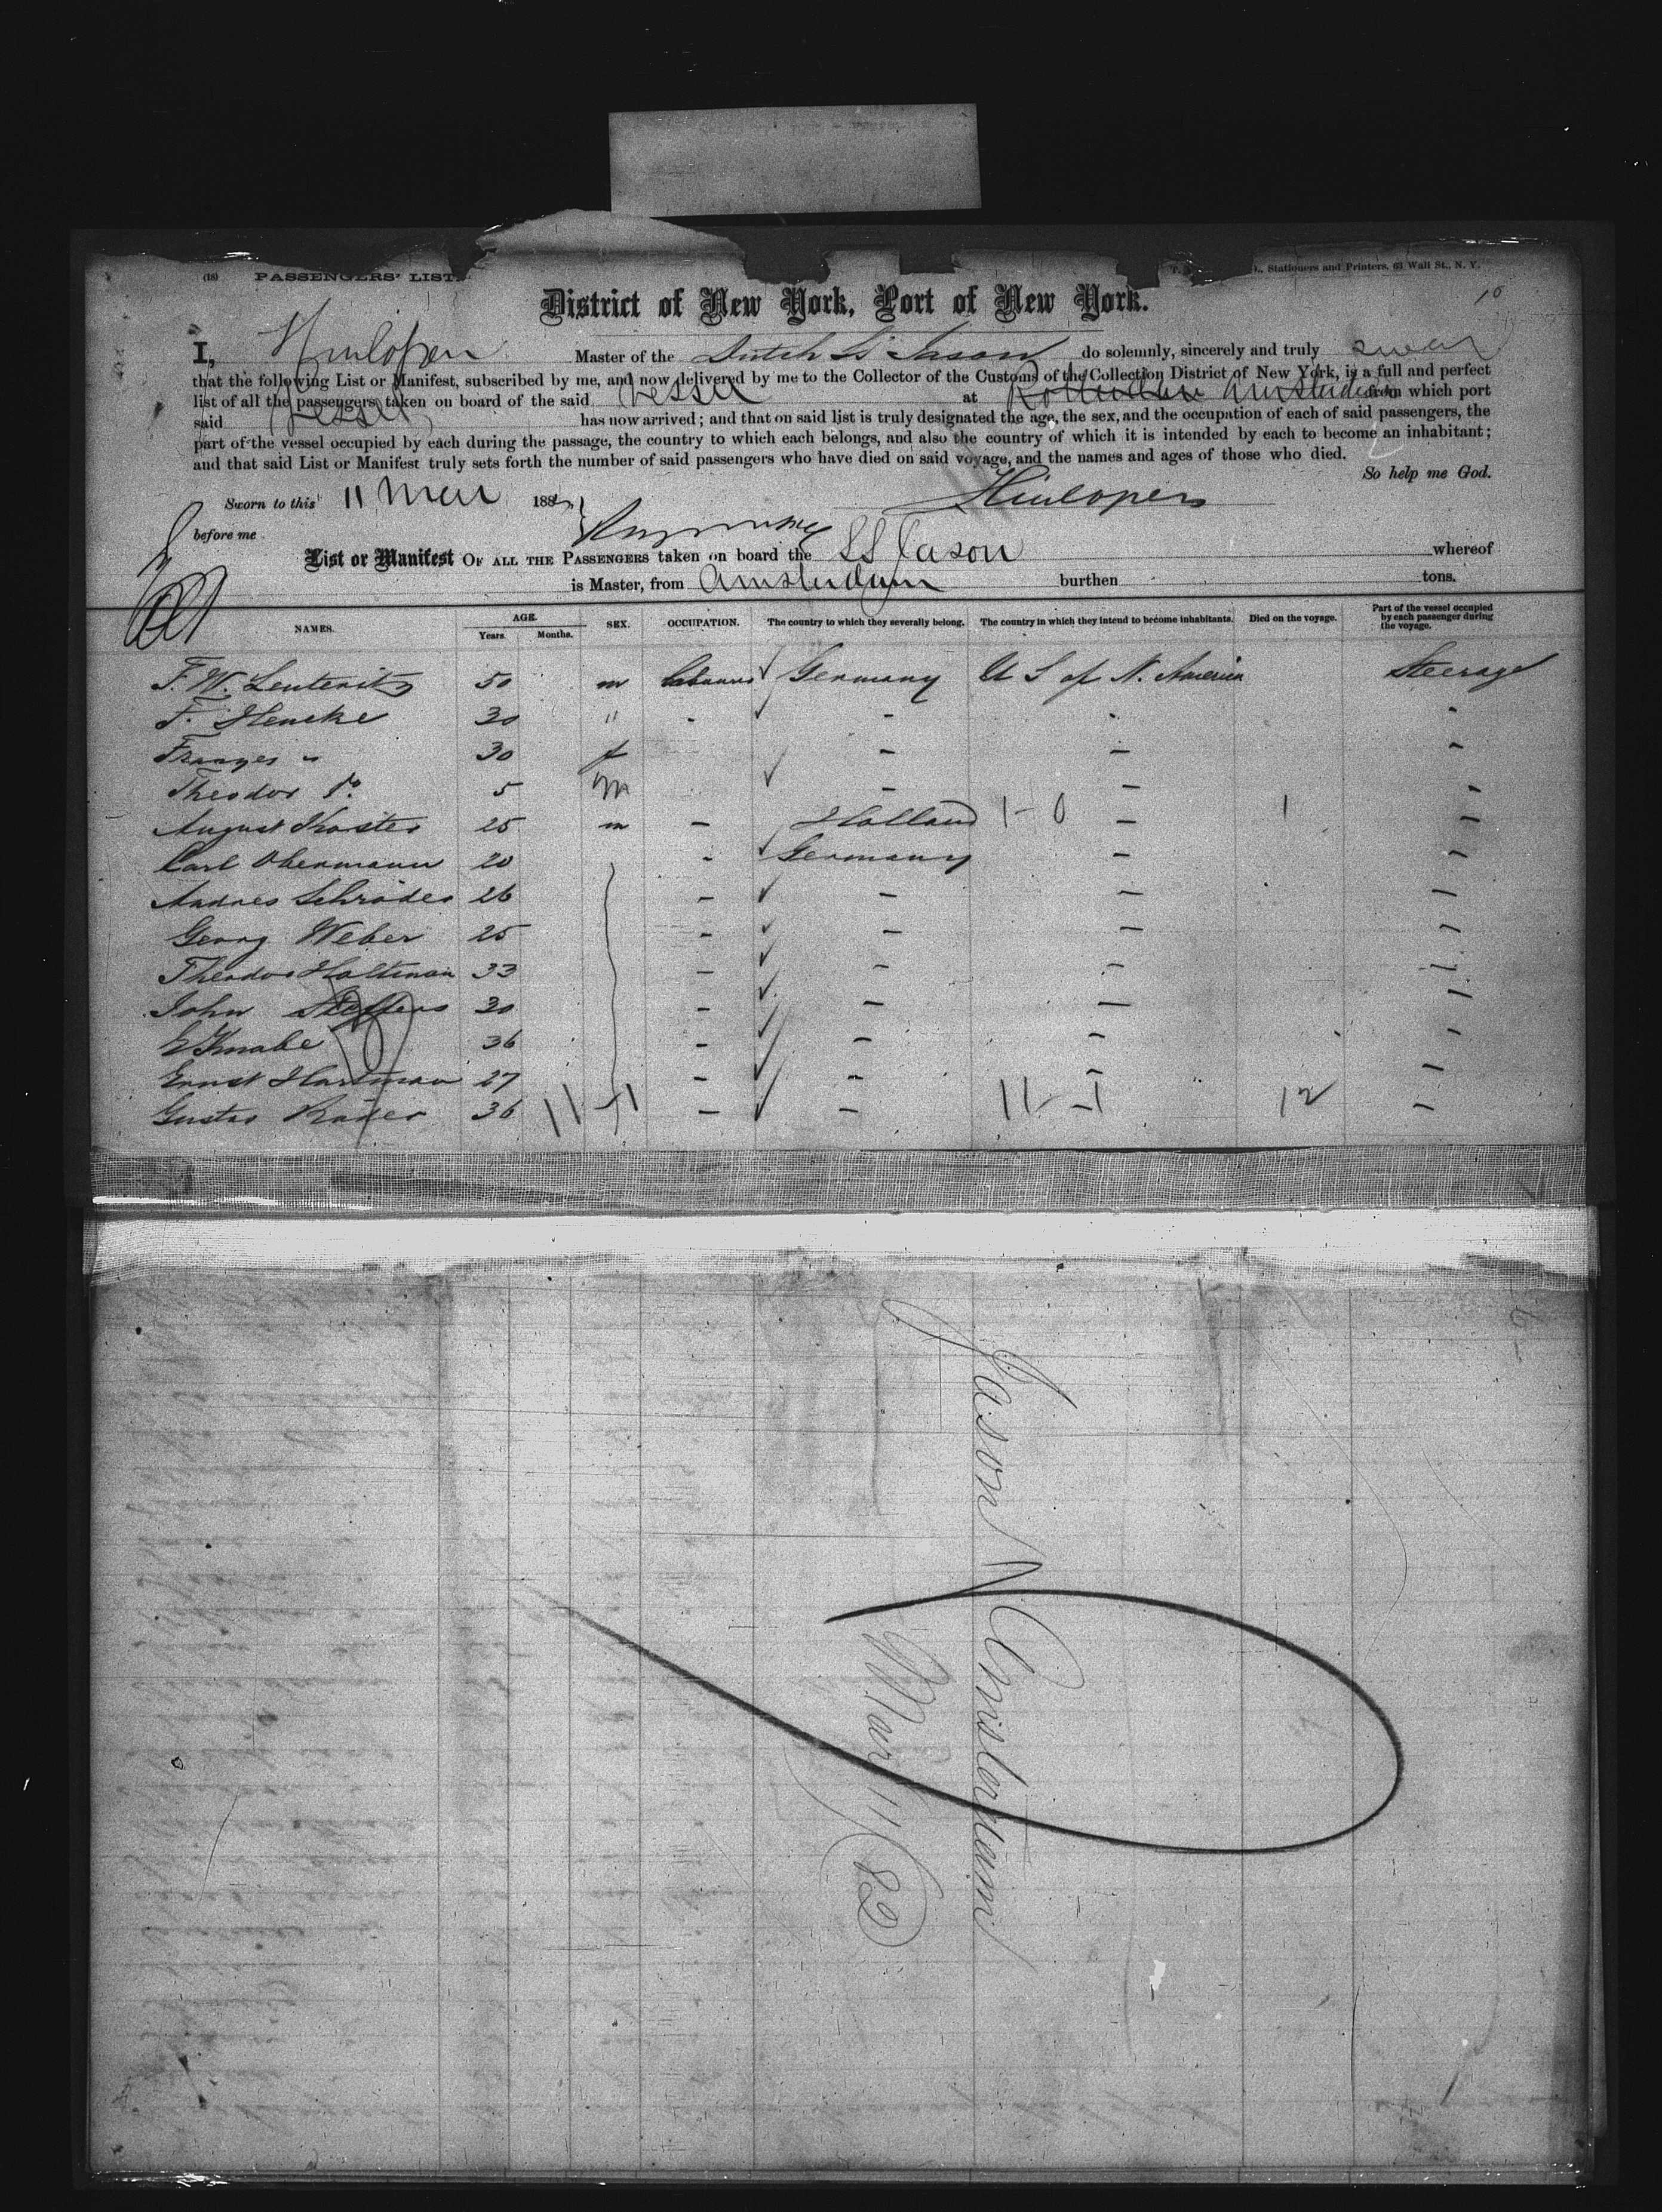 (18) PASSENGERS' LIST.
Stationers and Printers, 63 Wall St., N. Y.
10
District of New York, Port of New York.
I, Hinlopen Master of the Dutch SS Jason do solemnly, sincerely and truly swear
that the following List or Manifest, subscribed by me, and now delivered by me to the Collector of the Customs of the Collection District of New York, is a full and perfect
list of all the passengers taken on board of the said vessel at Rotterdam Amsterdam from which port
said vessel has now arrived; and that on said list is truly designated the age, the sex, and the occupation of each of said passengers, the
part of the vessel occupied by each during the passage, the country to which each belongs, and also the country of which it is intended by each to become an inhabitant;
and that said List or Manifest truly sets forth the number of said passengers who have died on said voyage, and the names and ages of those who died.
So help me God.
Sworn to this 11 Mar 1882 Hinlopen
before me
List or Manifest OF ALL THE PASSENGERS taken on board the SS Jason whereof
is Master, from Amsterdam burthen tons.
NAMES. AGE. Years. Months. SEX. OCCUPATION. The country to which they severally belong. The country in which they intend to become inhabitants. Died on the voyage. Part of the vessel occupied by each passenger during the voyage.
F. W. Leuteritz 50 m Germany U S of N. America Steerage
F. Hencke 30 " - - - -
30 f - - -
Theodor Do. 5 m - - -
August Koster 25 m - Holland 1-0 - 1 -
Carl Obermann 20 - Germany - -
Andres Schröder 26 - - - -
Georg Weber 25 - - - -
Theodor Holtman 33 - - - -
John Steffens 30 - - - -
E Knabe 36 - - - -
Ernst Hartman 27 - - - -
Gustav 36 11-1 - - 11-1 12 -
Jason
Amsterdam
Mar 11 82